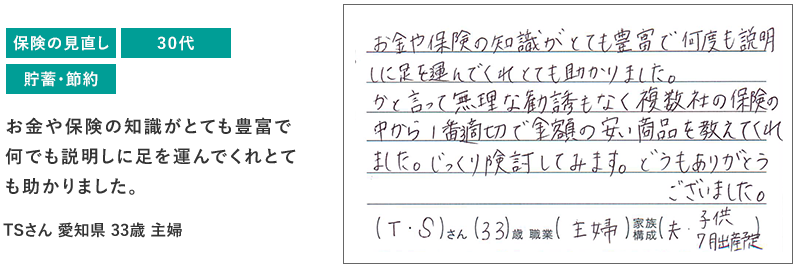 保険の見直し
30代
貯蓄・節約
お金や保険の知識がとても豊富で
何でも説明しに足を運んでくれとて
も助かりました。
TSさん 愛知県 33歳 主婦
お金や保険の知識がとても豊富で何度も説明
しに足を運んでくれとても助かりました。
かと言って無理な勧誘もなく複数社の保険の
中から1番適切で金額の安い商品を教えてくれ
ました。じっくり険討してみます。どうもありがとう
ございました。
(T・S)さん(33)歳 職業(主婦)家族構成(夫・子供 7月出産予定)